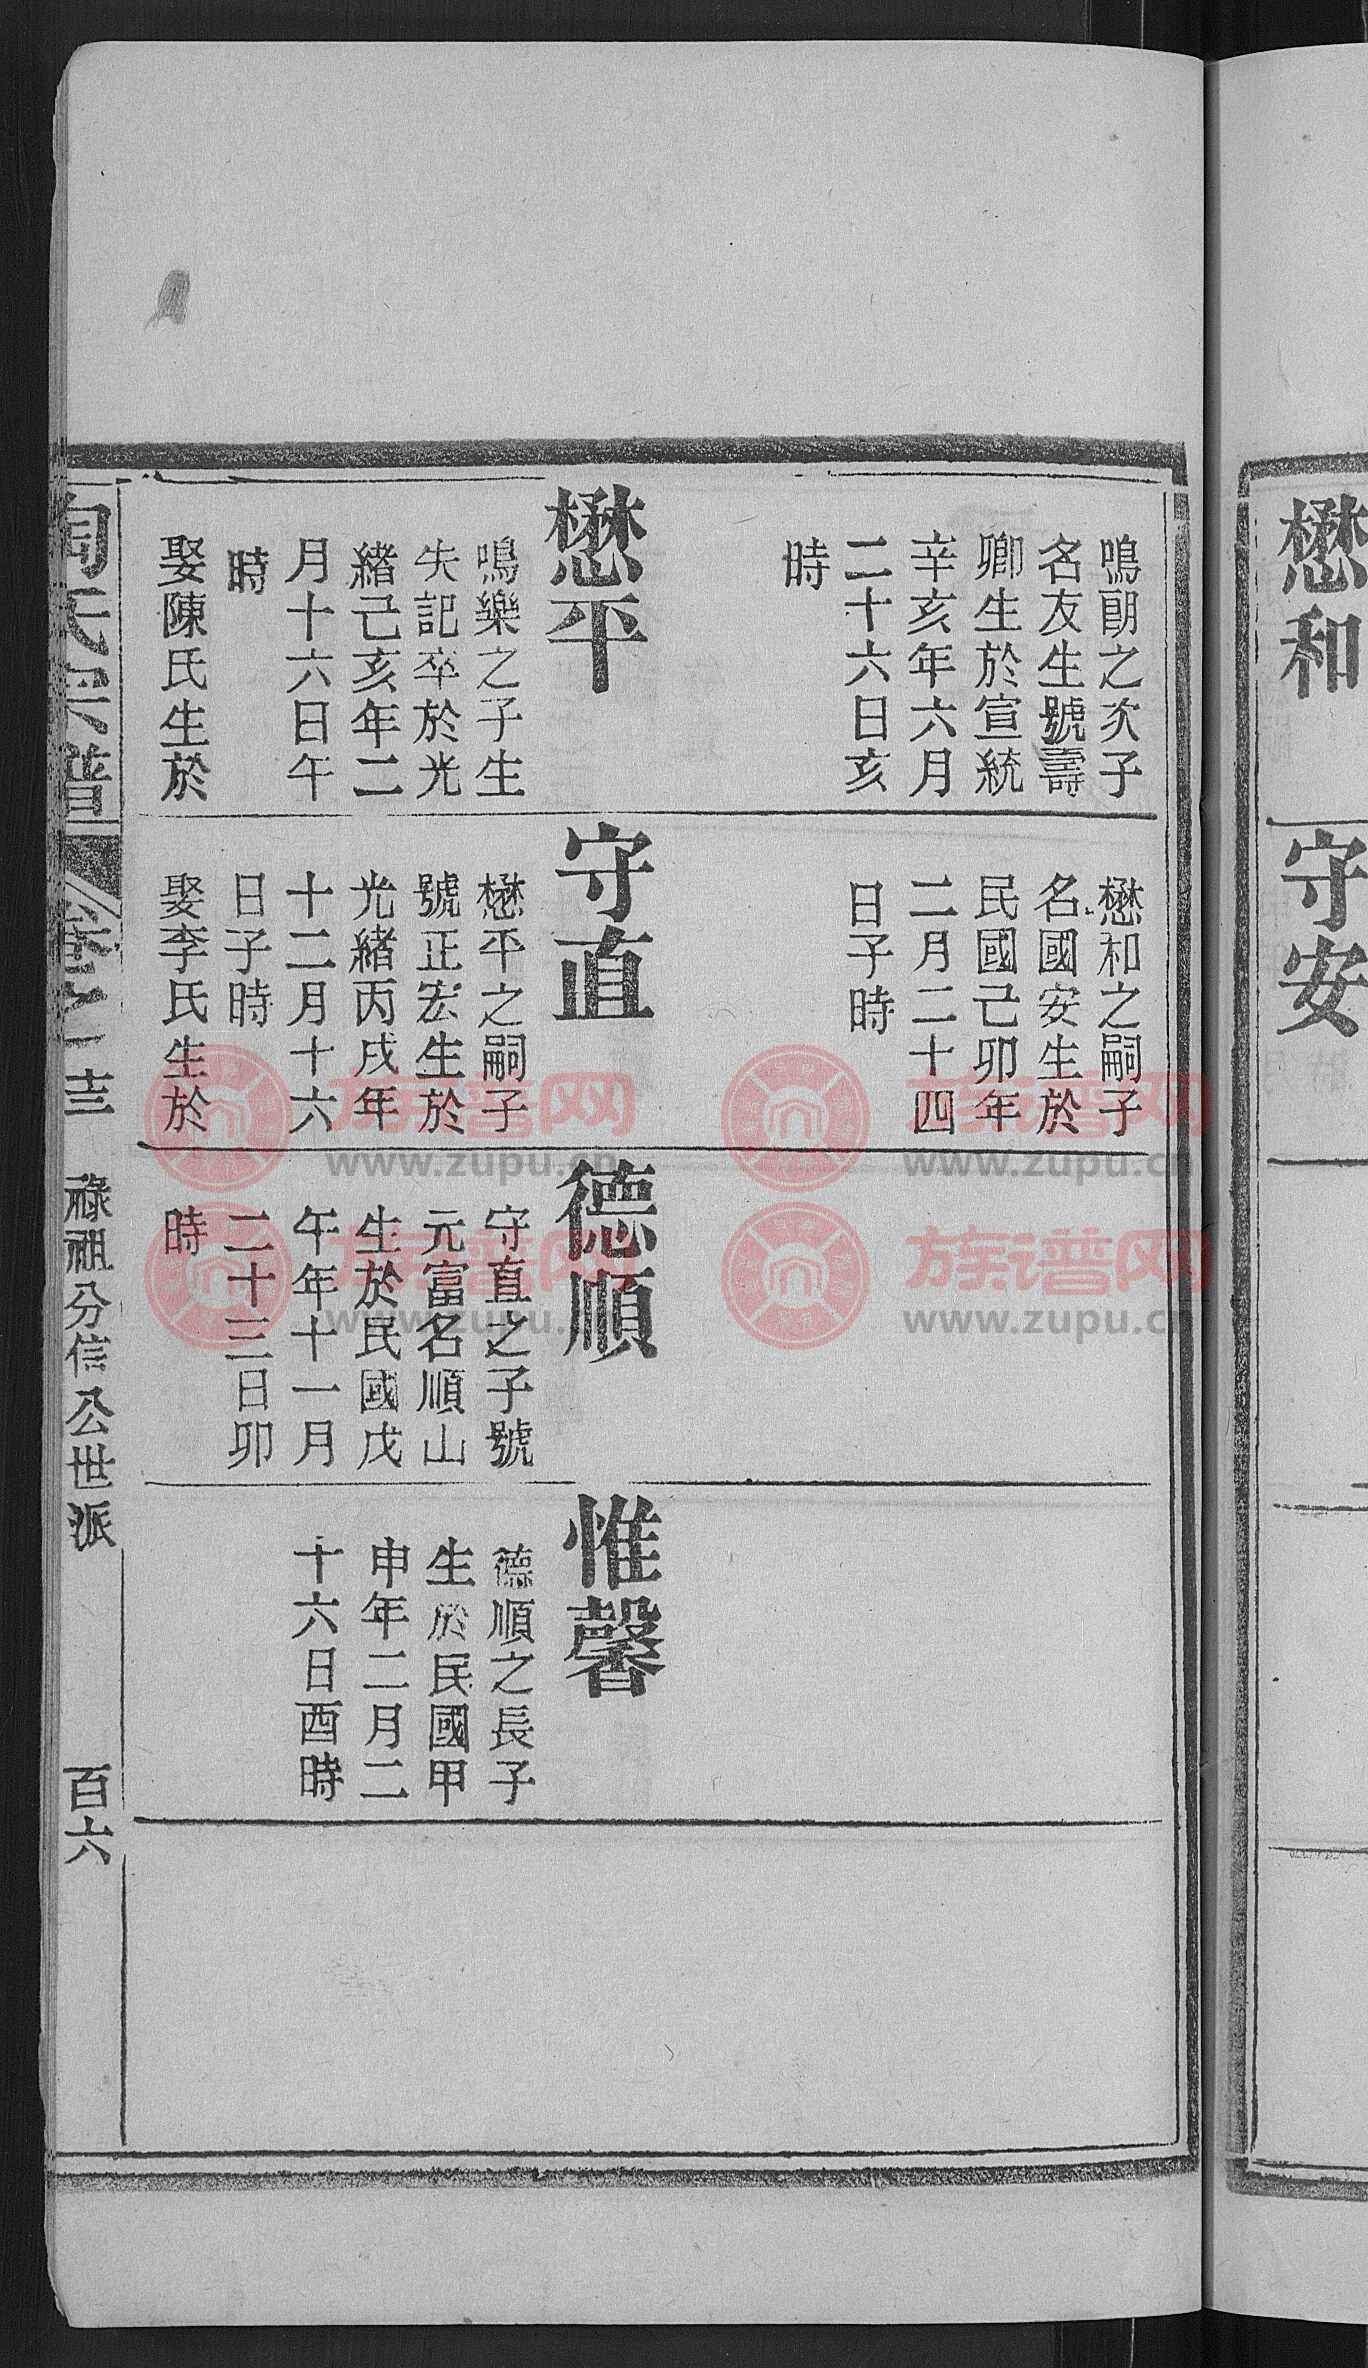 懋和
守安
鳴朗之次子
名友生號壽
卿生於宣統
辛亥年六月
二十六日亥
時
懋平
鳴樂之子生
失記卒於光
緒己亥年二
月十六日午
時
娶陳氏生於
懋和之嗣子
名國安生於
民國己卯年
二月二十四
日子時
守直
懋平之嗣子
號正宏生於
光緒丙戌年
十二月十六
日子時
娶李氏生於
德順
守直之子號
元富名順山
生於民國戊
午年十一月
二十三日卯
時
惟馨
德順之長子
生於民國甲
申年二月二
十六日酉時
陶氏宗譜
卷之
祿祖分信公世派
百六
族谱网
www.zupu.cn
族谱网
www.zupu.cn
族谱网
www.zupu.cn
族谱网
www.zupu.cn